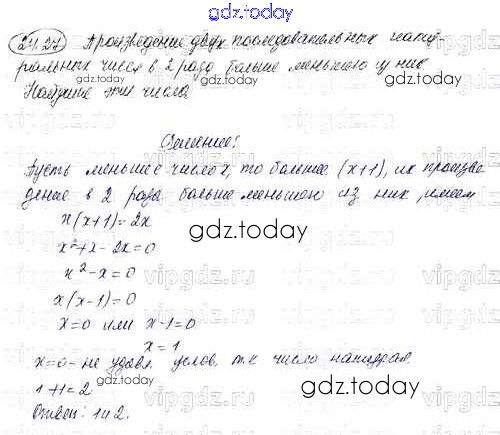 gdz.today
24.27 Произведение двух последовательных нату-
ральных чисел в 2 раза больше меньшего из них
Найдите эти числа.
Решение:
Пусть меньшее число x, то большее (x+1), их произве-
дение в 2 раза больше меньшего из них, имеем
x(x+1)=2x
gdz.today
x²+x-2x=0
x²-x=0
x(x-1)=0
x=0 или x-1=0
x=1
x=0- не удовл. услов, т.к число натурал.
1+1=2
gdz.today
Ответ: 1 и 2.
vipgdz.ru